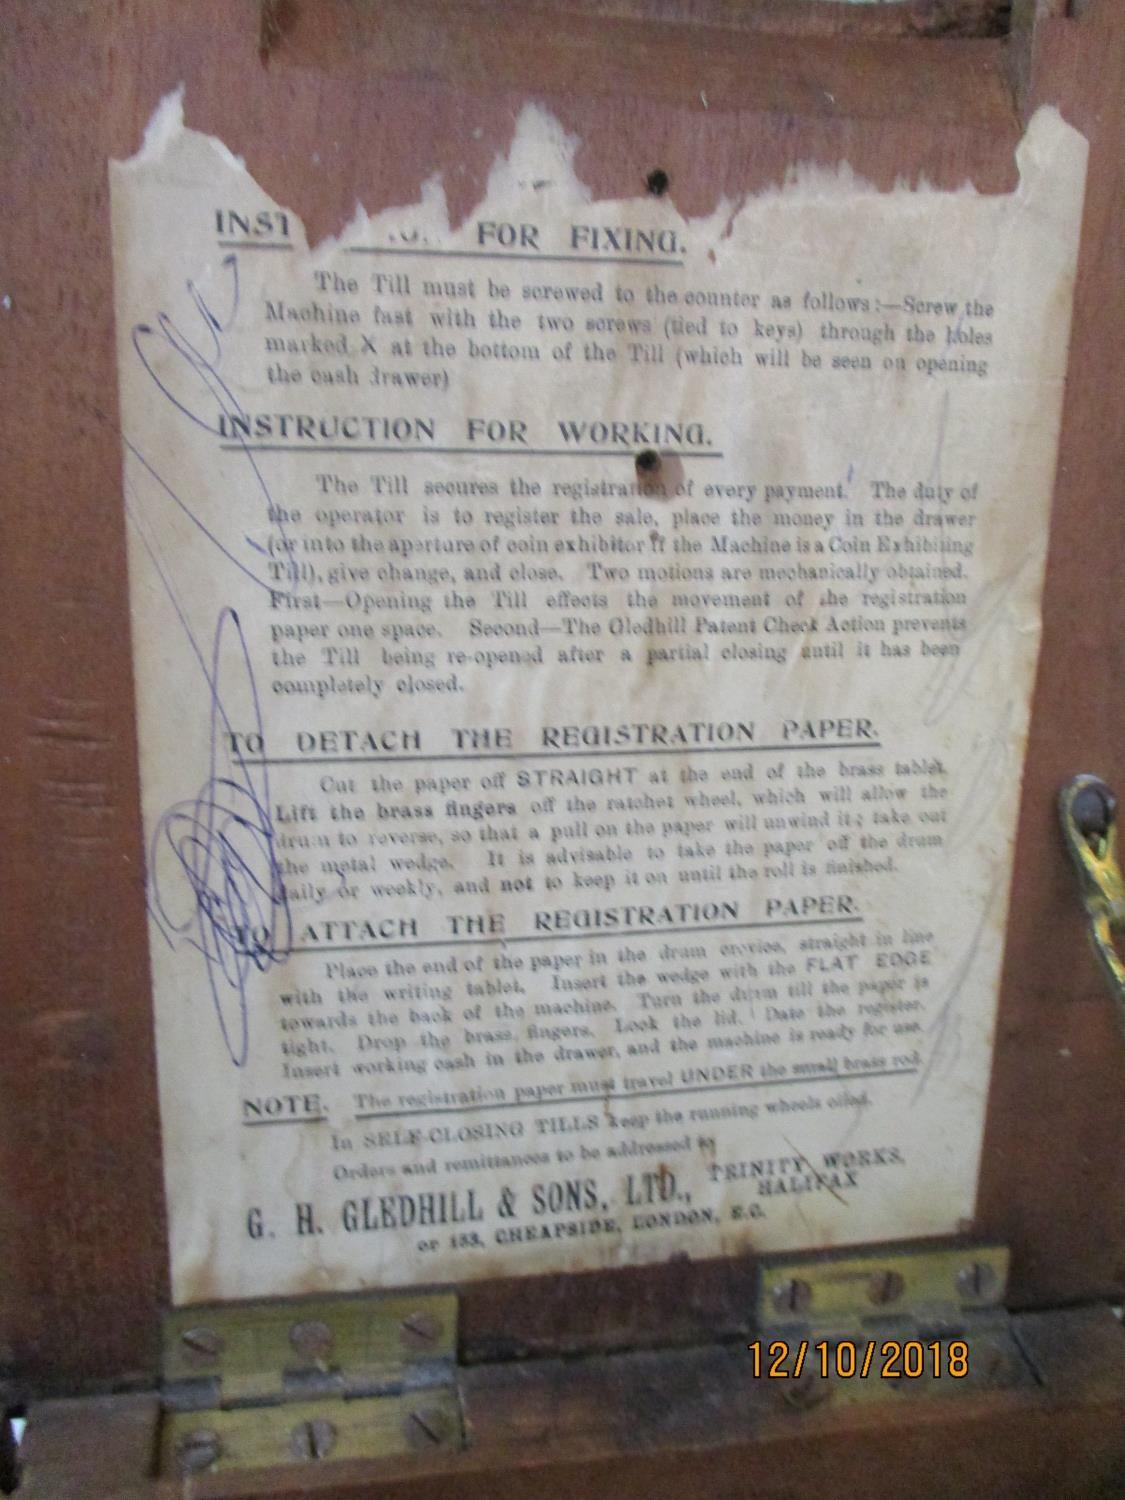 INST FOR FIXING.
The Till must be screwed to the counter as follows:—Screw the
Machine fast with the two screws (tied to keys) through the holes
marked X at the bottom of the Till (which will be seen on opening
the cash drawer)
INSTRUCTION FOR WORKING.
The Till secures the registration of every payment. The duty of
the operator is to register the sale, place the money in the drawer
(or into the aperture of coin exhibitor if the Machine is a Coin Exhibiting
Till), give change, and close. Two motions are mechanically obtained.
First—Opening the Till effects the movement of the registration
paper one space. Second—The Gledhill Patent Check Action prevents
the Till being re-opened after a partial closing until it has been
completely closed.
TO DETACH THE REGISTRATION PAPER.
Cut the paper off STRAIGHT at the end of the brass tablet.
Lift the brass fingers off the ratchet wheel, which will allow the
drum to reverse, so that a pull on the paper will unwind it; take out
the metal wedge. It is advisable to take the paper off the drum
daily or weekly, and not to keep it on until the roll is finished.
TO ATTACH THE REGISTRATION PAPER.
Place the end of the paper in the drum crevice, straight in line
with the writing tablet. Insert the wedge with the FLAT EDGE
towards the back of the machine. Turn the drum till the paper is
tight. Drop the brass fingers. Lock the lid. Date the register.
Insert working cash in the drawer, and the machine is ready for use.
NOTE. The registration paper must travel UNDER the small brass rod.
In SELF-CLOSING TILLS keep the running wheels oiled.
Orders and remittances to be addressed to
G. H. GLEDHILL & SONS, LTD., TRINITY WORKS,
HALIFAX
or 133, CHEAPSIDE, LONDON, E.C.
12/10/2018